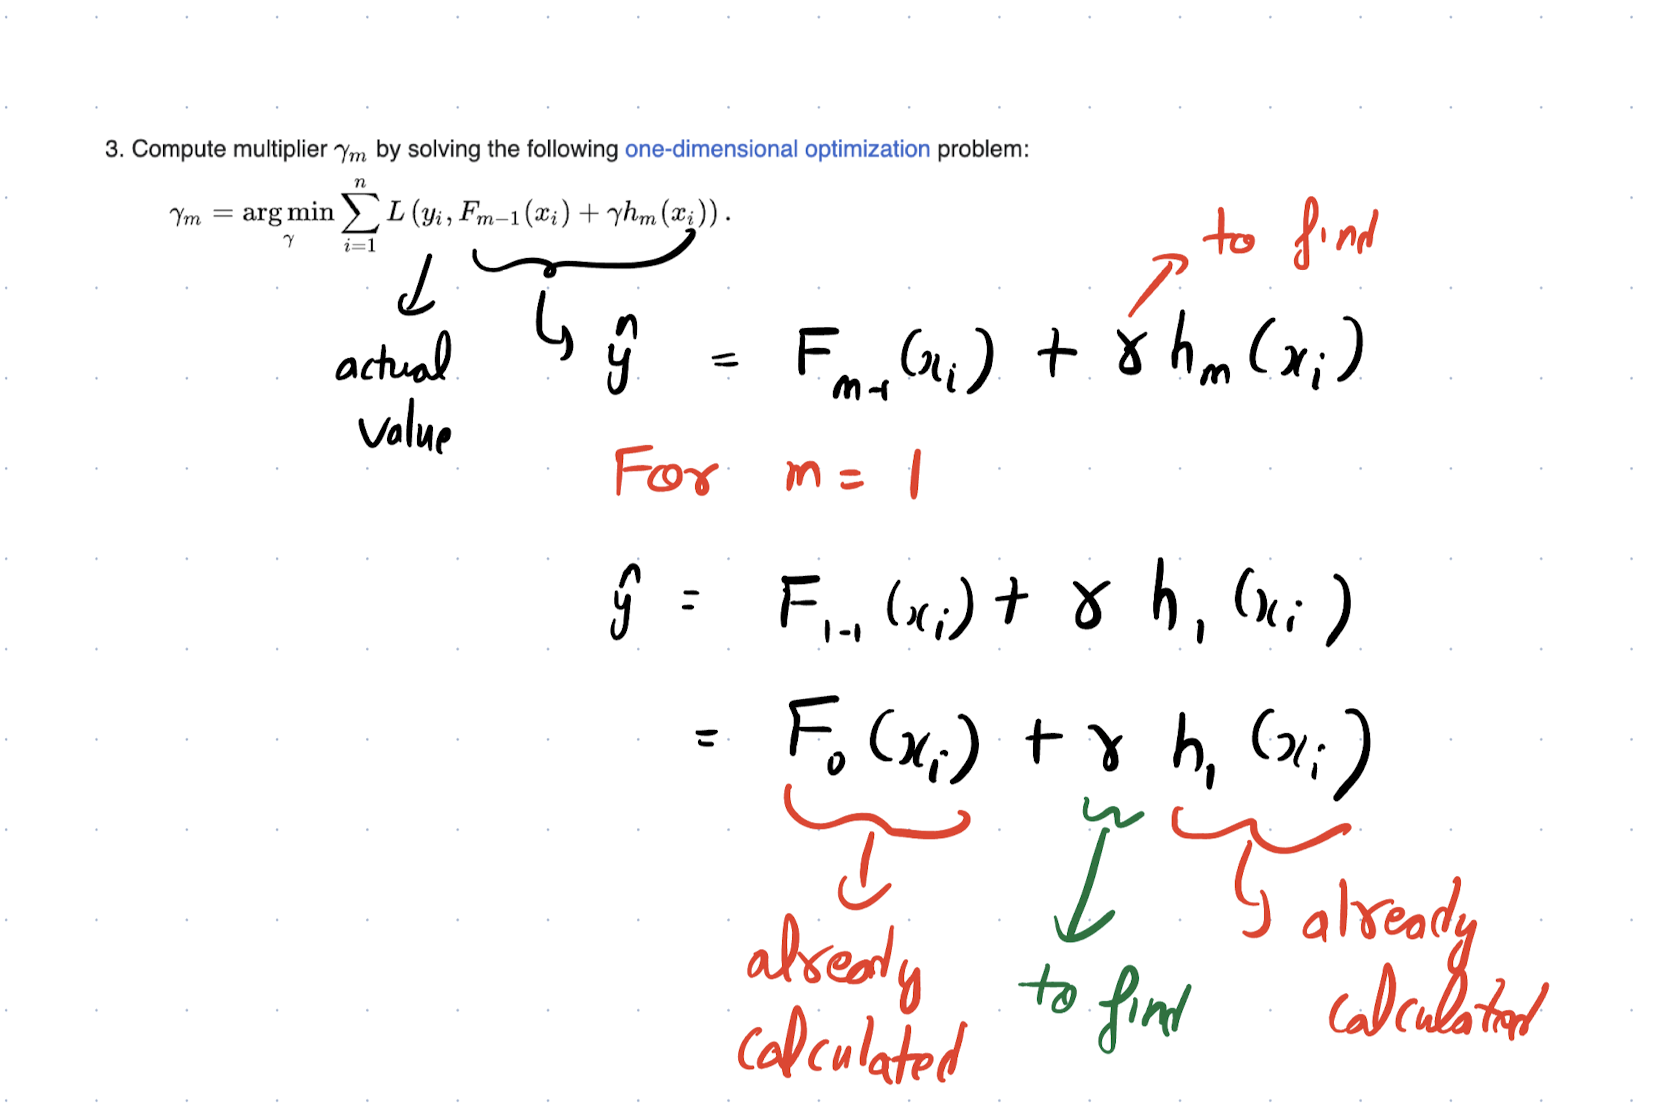 3. Compute multiplier γm by solving the following one-dimensional optimization problem:
γm = arg min γ ∑ n i=1 L (yi, Fm−1(xi) + γhm(xi)).
to find
actual
value
ŷ = Fm-1(xi) + γ hm(xi)
For m = 1
ŷ = F1-1(xi) + γ h1(xi)
= F0(xi) + γ h1(xi)
already
calculated
to find
already
calculated